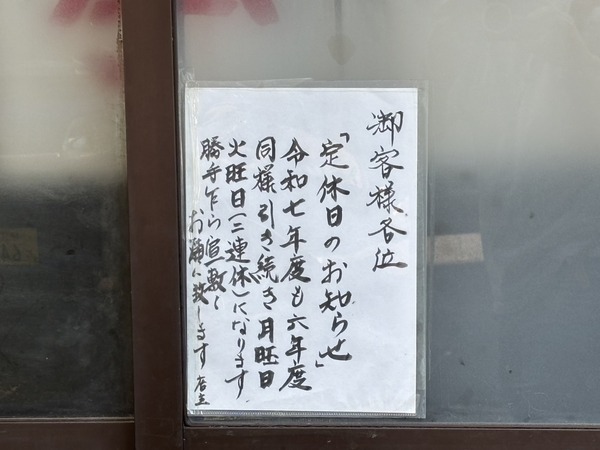 御客様各位
「定休日のお知らせ」
令和七年度も六年度
同様引き続き月旺日
火旺日(二連休)になります
勝手乍ら宜敷く
お願い致します 店主